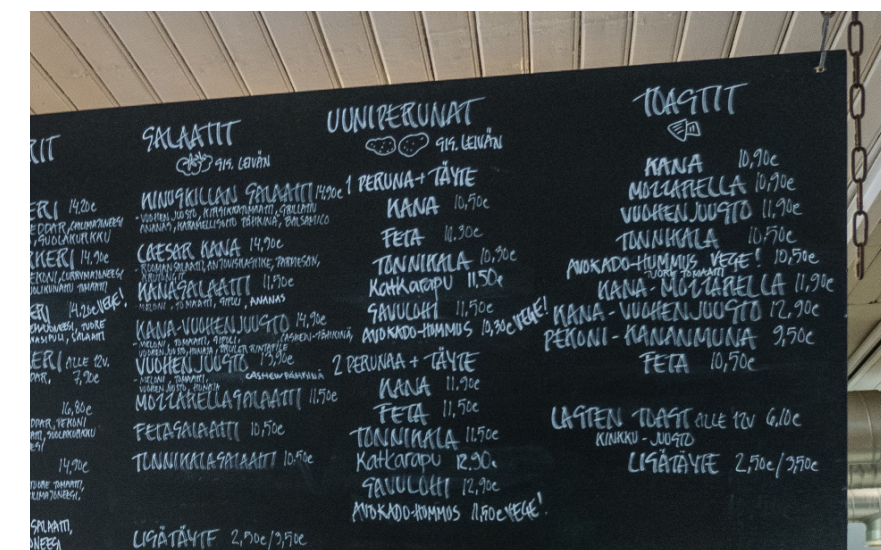 RIT
ERI 14,20€
EDDAR, CHILIMAJONEESI
, SUOLAKURKKU
KERI 14,90€
14,20€ VEGE!
, TUORE
, SALAATTI
ERI ALLE 12V.
DAR, 7,90€
16,80€
DDAR, PEKONI
, SUOLAKURKKU
14,90€
TUORE TOMAATTI,
SALAATTI,
SALAATIT
SIS. LEIVÄN
KINUSKILLAN SALAATTI 14,90€
- VUOHENJUUSTO, KIRSIKKATOMAATTI, GRILLATTU
ANANAS, KARAMELLISOITU PÄHKINÄ, BALSAMICO
CAESAR KANA 14,90€
- ROOMANSALAATTI, ANJOVISKASTIKE, PARMESAN,
KANASALAATTI 11,50€
- MELONI, TOMAATTI, SIPULI, ANANAS
KANA-VUOHENJUUSTO 14,90€
- MELONI, TOMAATTI, SIPULI, CASHEW-PÄHKINÄ,
VUOHENJUUSTO, HUNAJA
VUOHENJUUSTO 13,90€
- MELONI, TOMAATTI, CASHEWPÄHKINÄ
VUOHENJUUSTO, HUNAJA
MOZZARELLASALAATTI 11,50€
FETASALAATTI 10,50€
TONNIKALASALAATTI 10,50€
LISÄTÄYTE 2,50€/3,50€
UUNIPERUNAT
SIS. LEIVÄN
1 PERUNA + TÄYTE
KANA 10,50€
FETA 10,30€
TONNIKALA 10,30€
Katkarapu 11,50€
SAVULOHI 11,50€
AVOKADO-HUMMUS 10,30€ VEGE!
2 PERUNAA + TÄYTE
KANA 11,90€
FETA 11,50€
TONNIKALA 11,50€
Katkarapu 12,90€
SAVULOHI 12,90€
AVOKADO-HUMMUS 11,50€ VEGE!
TOASTIT
KANA 10,90€
MOZZARELLA 10,90€
VUOHENJUUSTO 11,90€
TONNIKALA 10,50€
AVOKADO-HUMMUS VEGE! 10,50€
TUORE TOMAATTI
KANA-MOZZARELLA 11,90€
KANA-VUOHENJUUSTO 12,90€
PEKONI-KANANMUNA 9,50€
FETA 10,50€
LASTEN TOAST ALLE 12V 6,10€
KINKKU-JUUSTO
LISÄTÄYTE 2,50€/3,50€